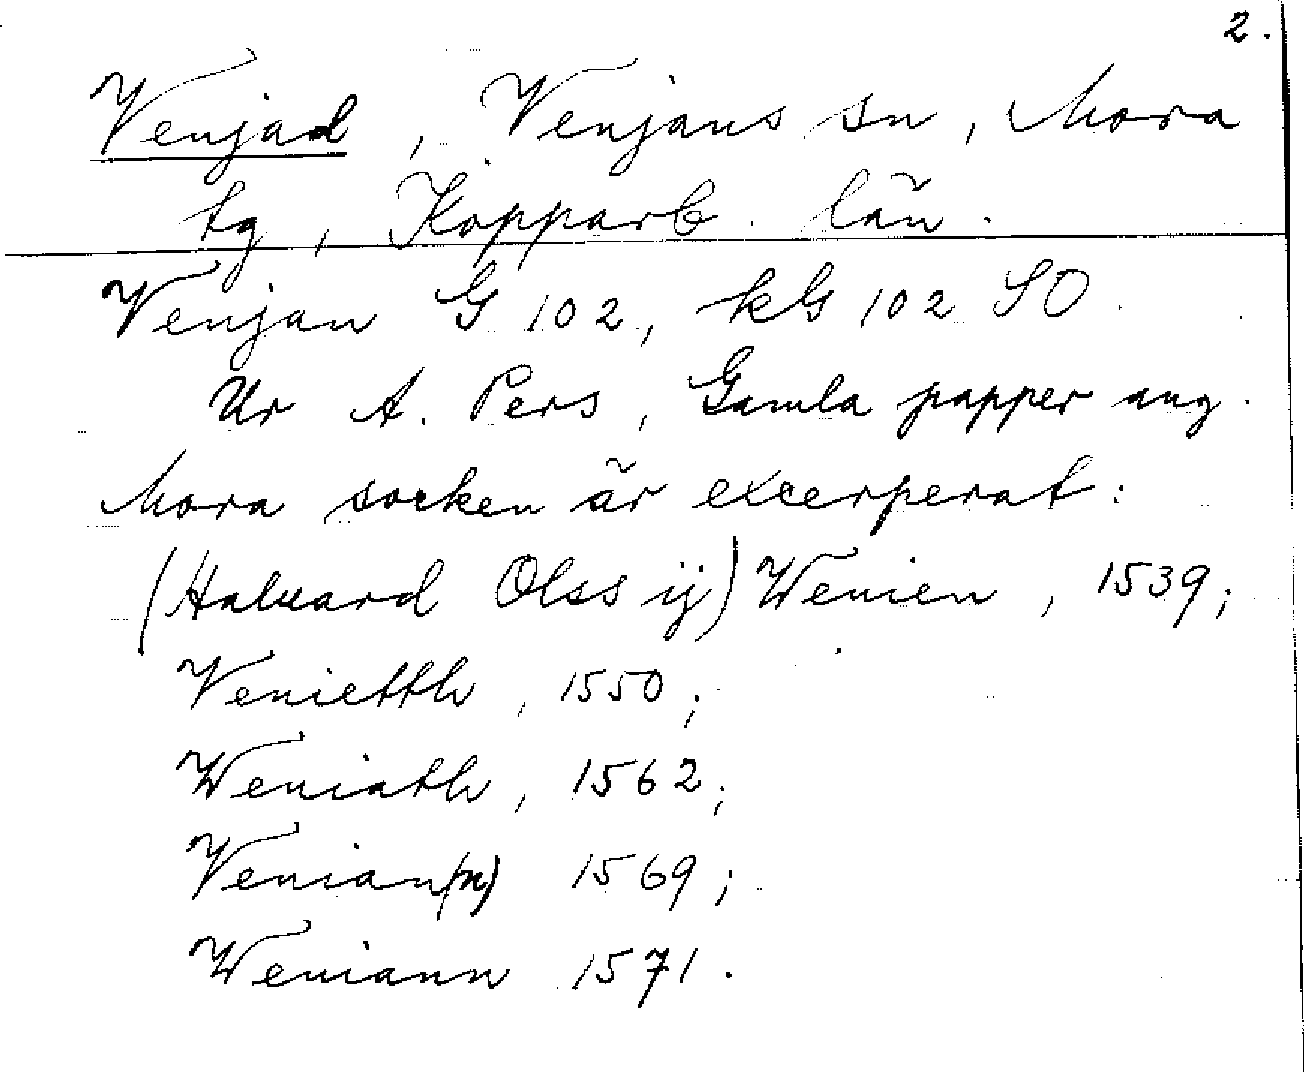 2.
Venjad, Venjans sn, Mora
tg, Kopparb. län.
Venjan G 102, kG 102 SO.
Ur A. Pers, Gamla papper ang.
Mora socken är excerperat:
(Haluard Olss ij) Wenien, 1539;
Venietth, 1550;
Weniath, 1562;
Venian(n) 1569;
Weniann 1571.